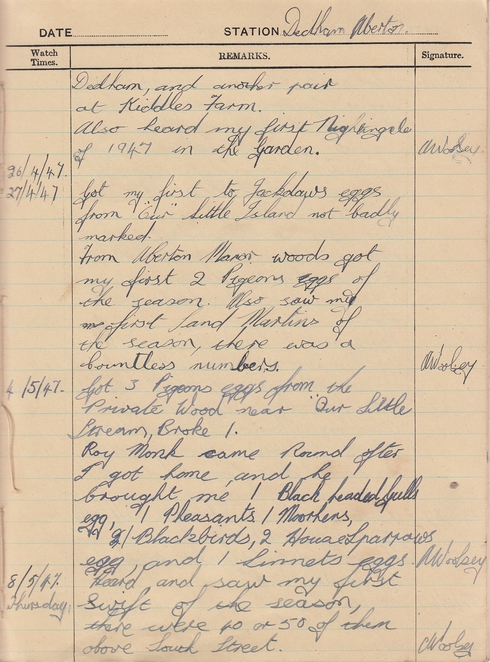 DATE STATION Dedham Aberton.
Watch Times. REMARKS. Signature.
Dedham, and another pair
at Kiddles Farm.
Also heard my first Nightingale
of 1947 in the Garden. AWoolsey
26/4/47.
27/4/47 Got my first to Jackdaws eggs
from "Our" Little Island not badly
marked.
From Aberton Manor woods got
my first 2 Pigeons eggs of
the season. Also saw my
first Sand Martins of
the season, there was a
countless numbers. AWoolsey
4/5/47. Got 3 Pigeons eggs from the
Private Wood near "Our Little
Stream, Broke 1.
Roy Monk came Round after
I got home, and he
brought me 1 Black headed Gulls
egg, 1 Pheasants 1 Moorhens,
2 Blackbirds, 2 House Sparrows
egg, and 1 Linnets eggs. AWoolsey
8/5/47. Heard and saw my first
Thursday. Swift of the season,
there were 40 or 50 of them
above South Street. AWoolsey